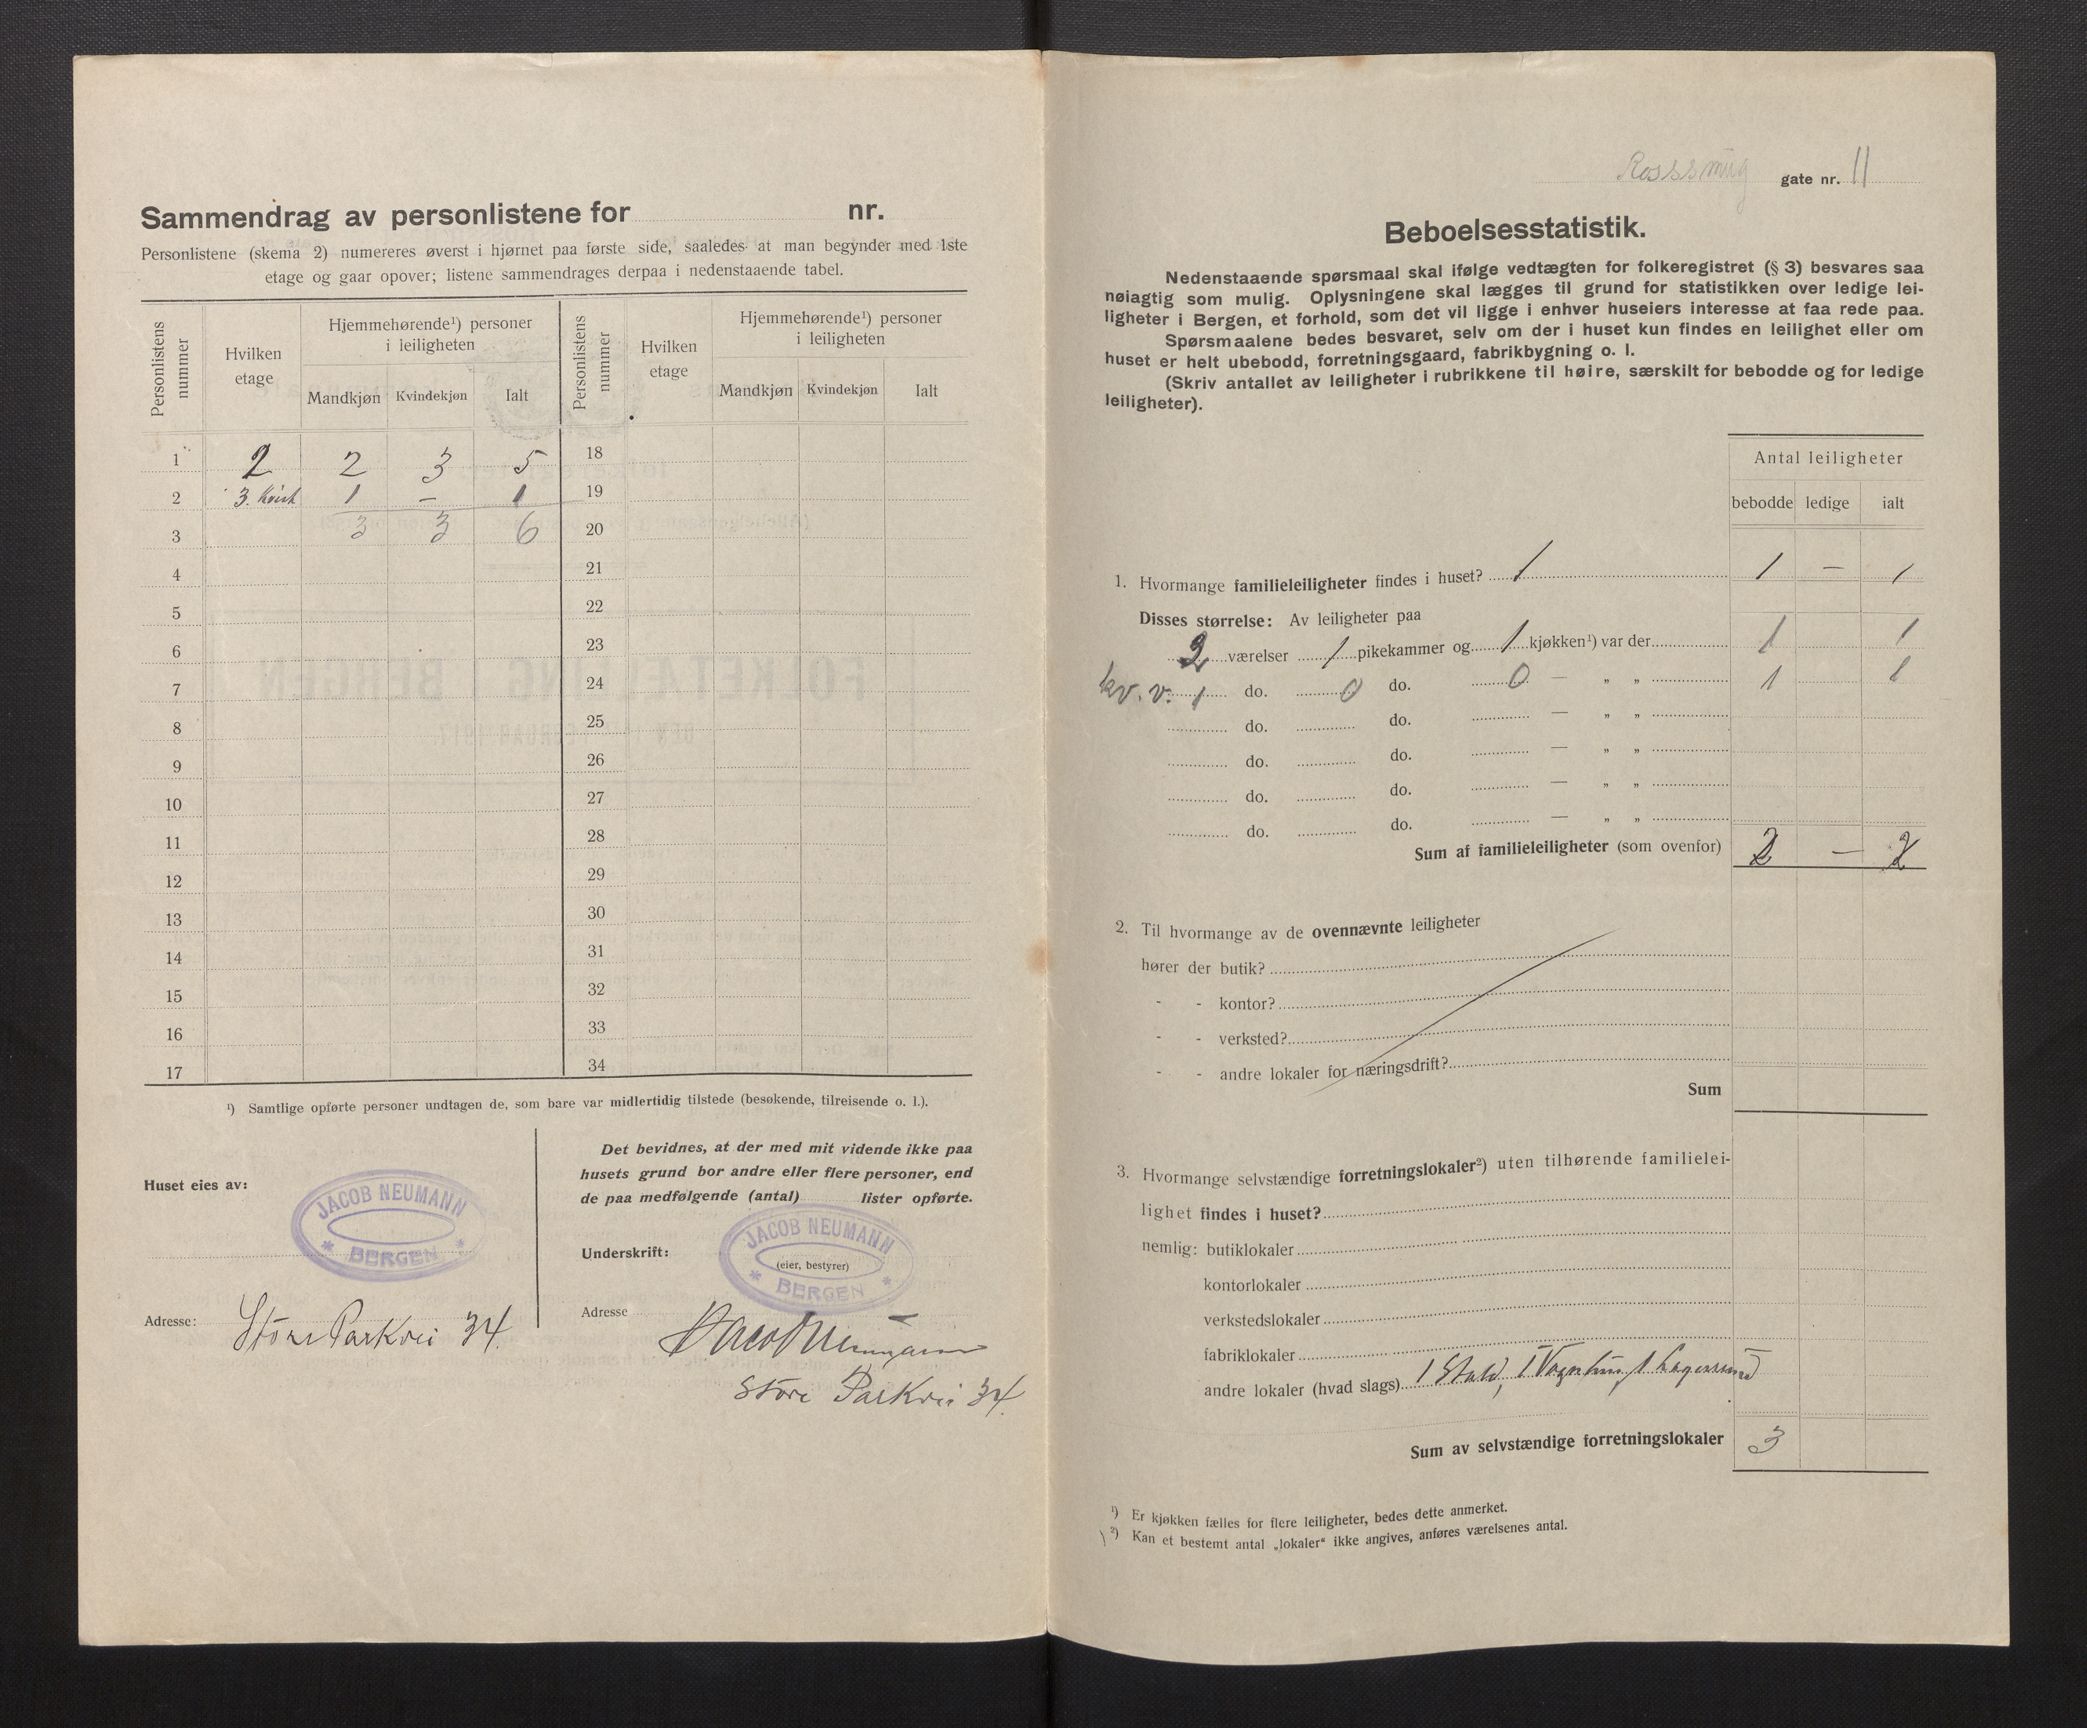 Sammendrag av personlistene for nr.
Personlistene (skema 2) numereres øverst i hjørnet paa første side, saaledes at man begynder med 1ste
etage og gaar opover; listene sammendrages derpaa i nedenstaaende tabel.
Personlistens nummer
Hvilken etage
Hjemmehørende¹) personer i leiligheten
Mandkjøn Kvindekjøn Ialt
Personlistens nummer
Hvilken etage
Hjemmehørende¹) personer i leiligheten
Mandkjøn Kvindekjøn Ialt
1 2 2 3 5 18
2 3. Kvist 1 – 1 19
3 3 3 6 20
4 21
5 22
6 23
7 24
8 25
9 26
10 27
11 28
12 29
13 30
14 31
15 32
16 33
17 34
¹) Samtlige opførte personer undtagen de, som bare var midlertidig tilstede (besøkende, tilreisende o. l.).
Huset eies av:
JACOB NEUMANN
* BERGEN *
Adresse: Store Parkvei 34.
Det bevidnes, at der med mit vidende ikke paa
husets grund bor andre eller flere personer, end
de paa medfølgende (antal) lister opførte.
Underskrift:
JACOB NEUMANN
(eier, bestyrer)
* BERGEN *
Adresse Jacob Neumann
Store Parkvei 34.
Rosssmug gate nr. 11
Beboelsesstatistik.
Nedenstaaende spørsmaal skal ifølge vedtægten for folkeregistret (§ 3) besvares saa
nøiagtig som mulig. Oplysningene skal lægges til grund for statistikken over ledige lei-
ligheter i Bergen, et forhold, som det vil ligge i enhver huseiers interesse at faa rede paa.
Spørsmaalene bedes besvaret, selv om der i huset kun findes en leilighet eller om
huset er helt ubebodd, forretningsgaard, fabrikbygning o. l.
(Skriv antallet av leiligheter i rubrikkene til høire, særskilt for bebodde og for ledige
leiligheter).
Antal leiligheter
bebodde ledige ialt
1. Hvormange familieleiligheter findes i huset? 1 1 – 1
Disses størrelse: Av leiligheter paa
2 værelser 1 pikekammer og 1 kjøkken¹) var der 1 1
kv. v. 1 do. 0 do. 0 — „ „ 1 1
do. do. — „ „
do. do. — „ „
do. do. — „ „
do. do. — „ „
Sum af familieleiligheter (som ovenfor) 2 – 2
2. Til hvormange av de ovennævnte leiligheter
hører der butik?
- - kontor?
- - verksted?
- - andre lokaler for næringsdrift?
Sum
3. Hvormange selvstændige forretningslokaler²) uten tilhørende familielei-
lighet findes i huset?
nemlig: butiklokaler
kontorlokaler
verkstedslokaler
fabriklokaler
andre lokaler (hvad slags) 1 Stald, 1 Vognhus, 1 Lagerrum
Sum av selvstændige forretningslokaler 3
¹) Er kjøkken fælles for flere leiligheter, bedes dette anmerket.
²) Kan et bestemt antal „lokaler“ ikke angives, anføres værelsenes antal.